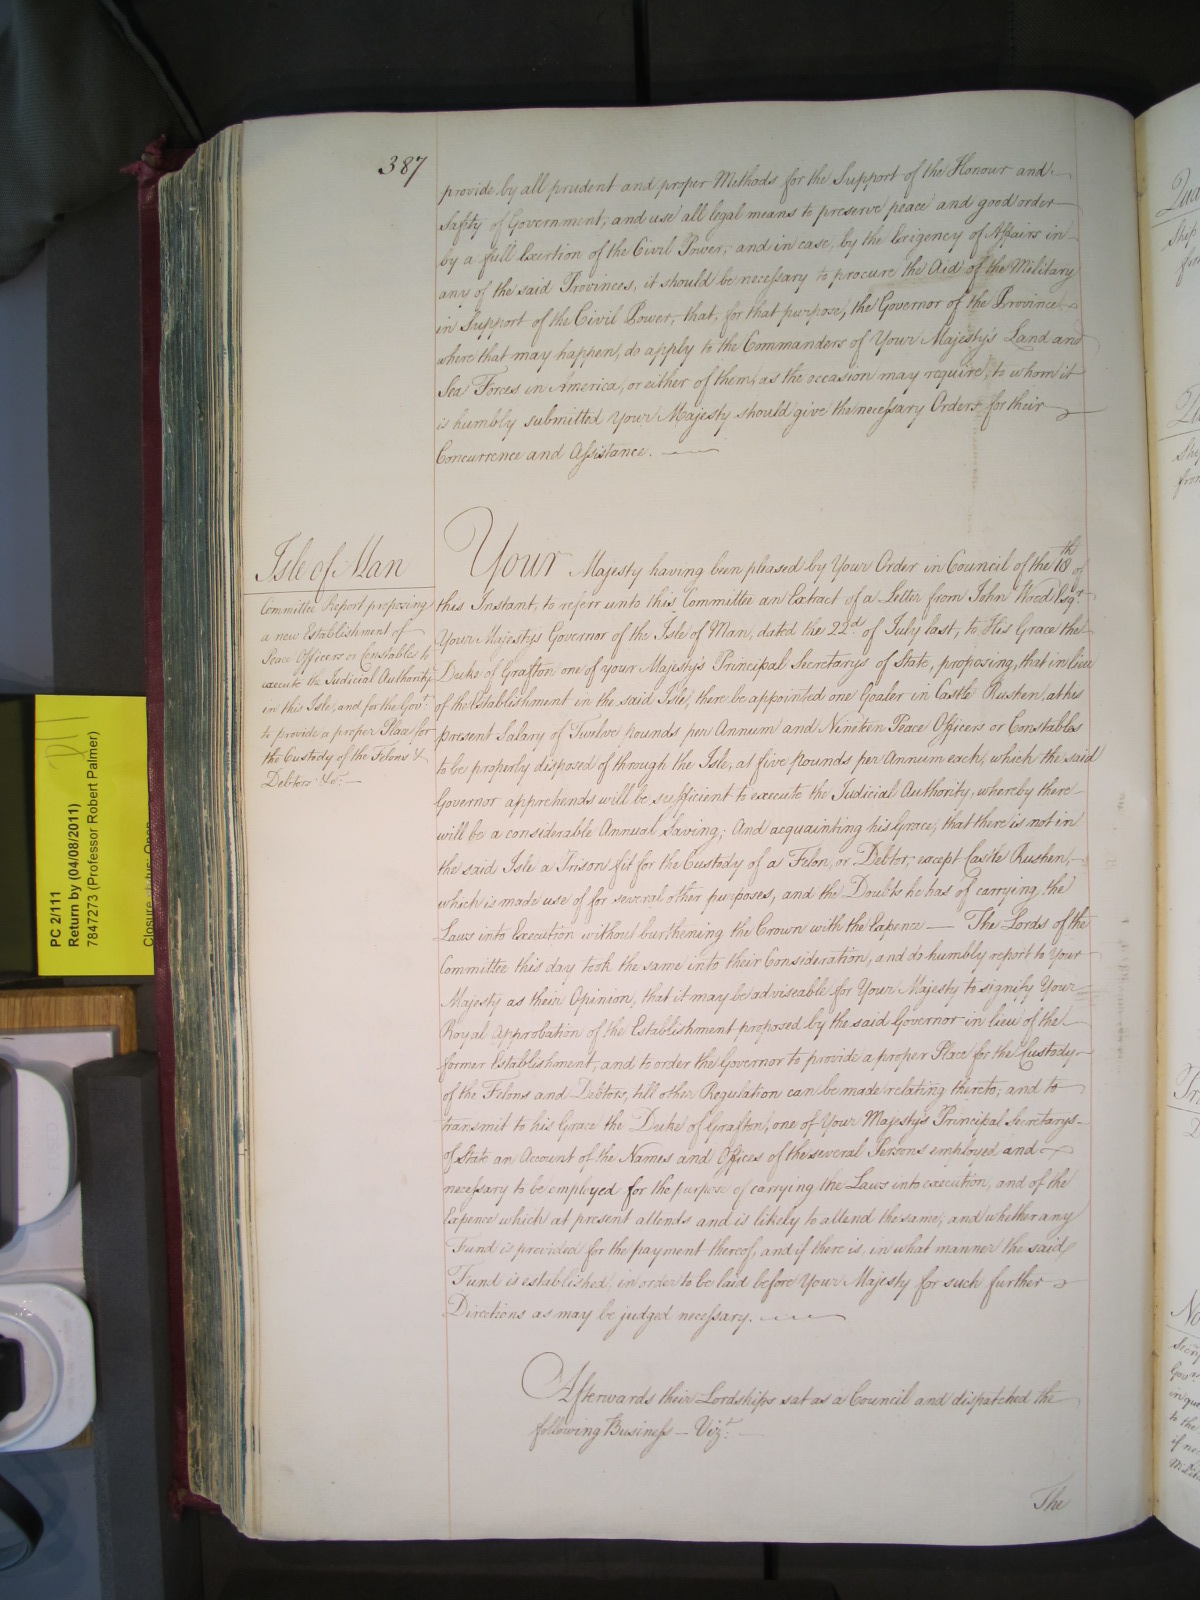 387
provide by all prudent and proper Methods for the Support of the Honour and
Safety of Government, and use all legal means to preserve peace and good order
by a full Exertion of the Civil Power, and in case, by the Exigency of Affairs in
any of the said Provinces, it should be necessary to procure the Aid of the Military
in Support of the Civil Power, that, for that purpose, the Governor of the Province
where that may happen, do apply to the Commanders of Your Majesty's Land and
Sea Forces in America, or either of them, as the occasion may require, to whom it
is humbly submitted Your Majesty should give the necessary Orders for their
Concurrence and Assistance.
Isle of Man
Committee Report proposing
a new Establishment of
Peace Officers or Constables to
execute the Judicial Authority
in this Isle, and for the Govr.
to provide a proper Place for
the Custody of the Felons &
Debtors &c.
Your Majesty having been pleased by Your Order in Council of the 18th of
this Instant, to referr unto this Committee an Extract of a Letter from John Wood Esqr.
Your Majestys Governor of the Isle of Man, dated the 22d of July last, to His Grace the
Duke of Grafton one of your Majesty's Principal Secretarys of State, proposing, that in lieu
of the Establishment in the said Isle, there be appointed one Goaler in Castle Rushen, at his
present Salary of Twelve pounds per Annum and Nineteen Peace Officers or Constables
to be properly disposed of through the Isle, at five pounds per Annum each, which the said
Governor apprehends will be sufficient to execute the Judicial Authority, whereby there
will be a considerable Annual Saving; And acquainting his Grace, that there is not in
the said Isle a Prison fit for the Custody of a Felon, or Debtor, except Castle Rushen,
which is made use of for several other purposes, and the Doubts he has of carrying the
Laws into Execution without burthening the Crown with the Expence — The Lords of the
Committee this day took the same into their Consideration, and do humbly report to Your
Majesty as their Opinion, that it may be adviseable for Your Majesty to signify Your
Royal Approbation of the Establishment proposed by the said Governor in lieu of the
former Establishment, and to order the Governor to provide a proper Place for the Custody
of the Felons and Debtors, till other Regulation can be made relating thereto; and to
transmit to his Grace the Duke of Grafton, one of Your Majesty's Principal Secretarys
of State an Account of the Names and Offices of the several Persons employed and
necessary to be employed for the purpose of carrying the Laws into execution, and of the
Expence which at present attends and is likely to attend the same, and whether any
Fund is provided for the payment thereof, and if there is, in what manner the said
Fund is established, in order to be laid before Your Majesty for such further
Directions as may be judged necessary.
Afterwards their Lordships sat as a Council and dispatched the
following Business — Vizt.
The
PC 2/111
Return by (04/08/2011)
7847273 (Professor Robert Palmer)
Closure status: Open